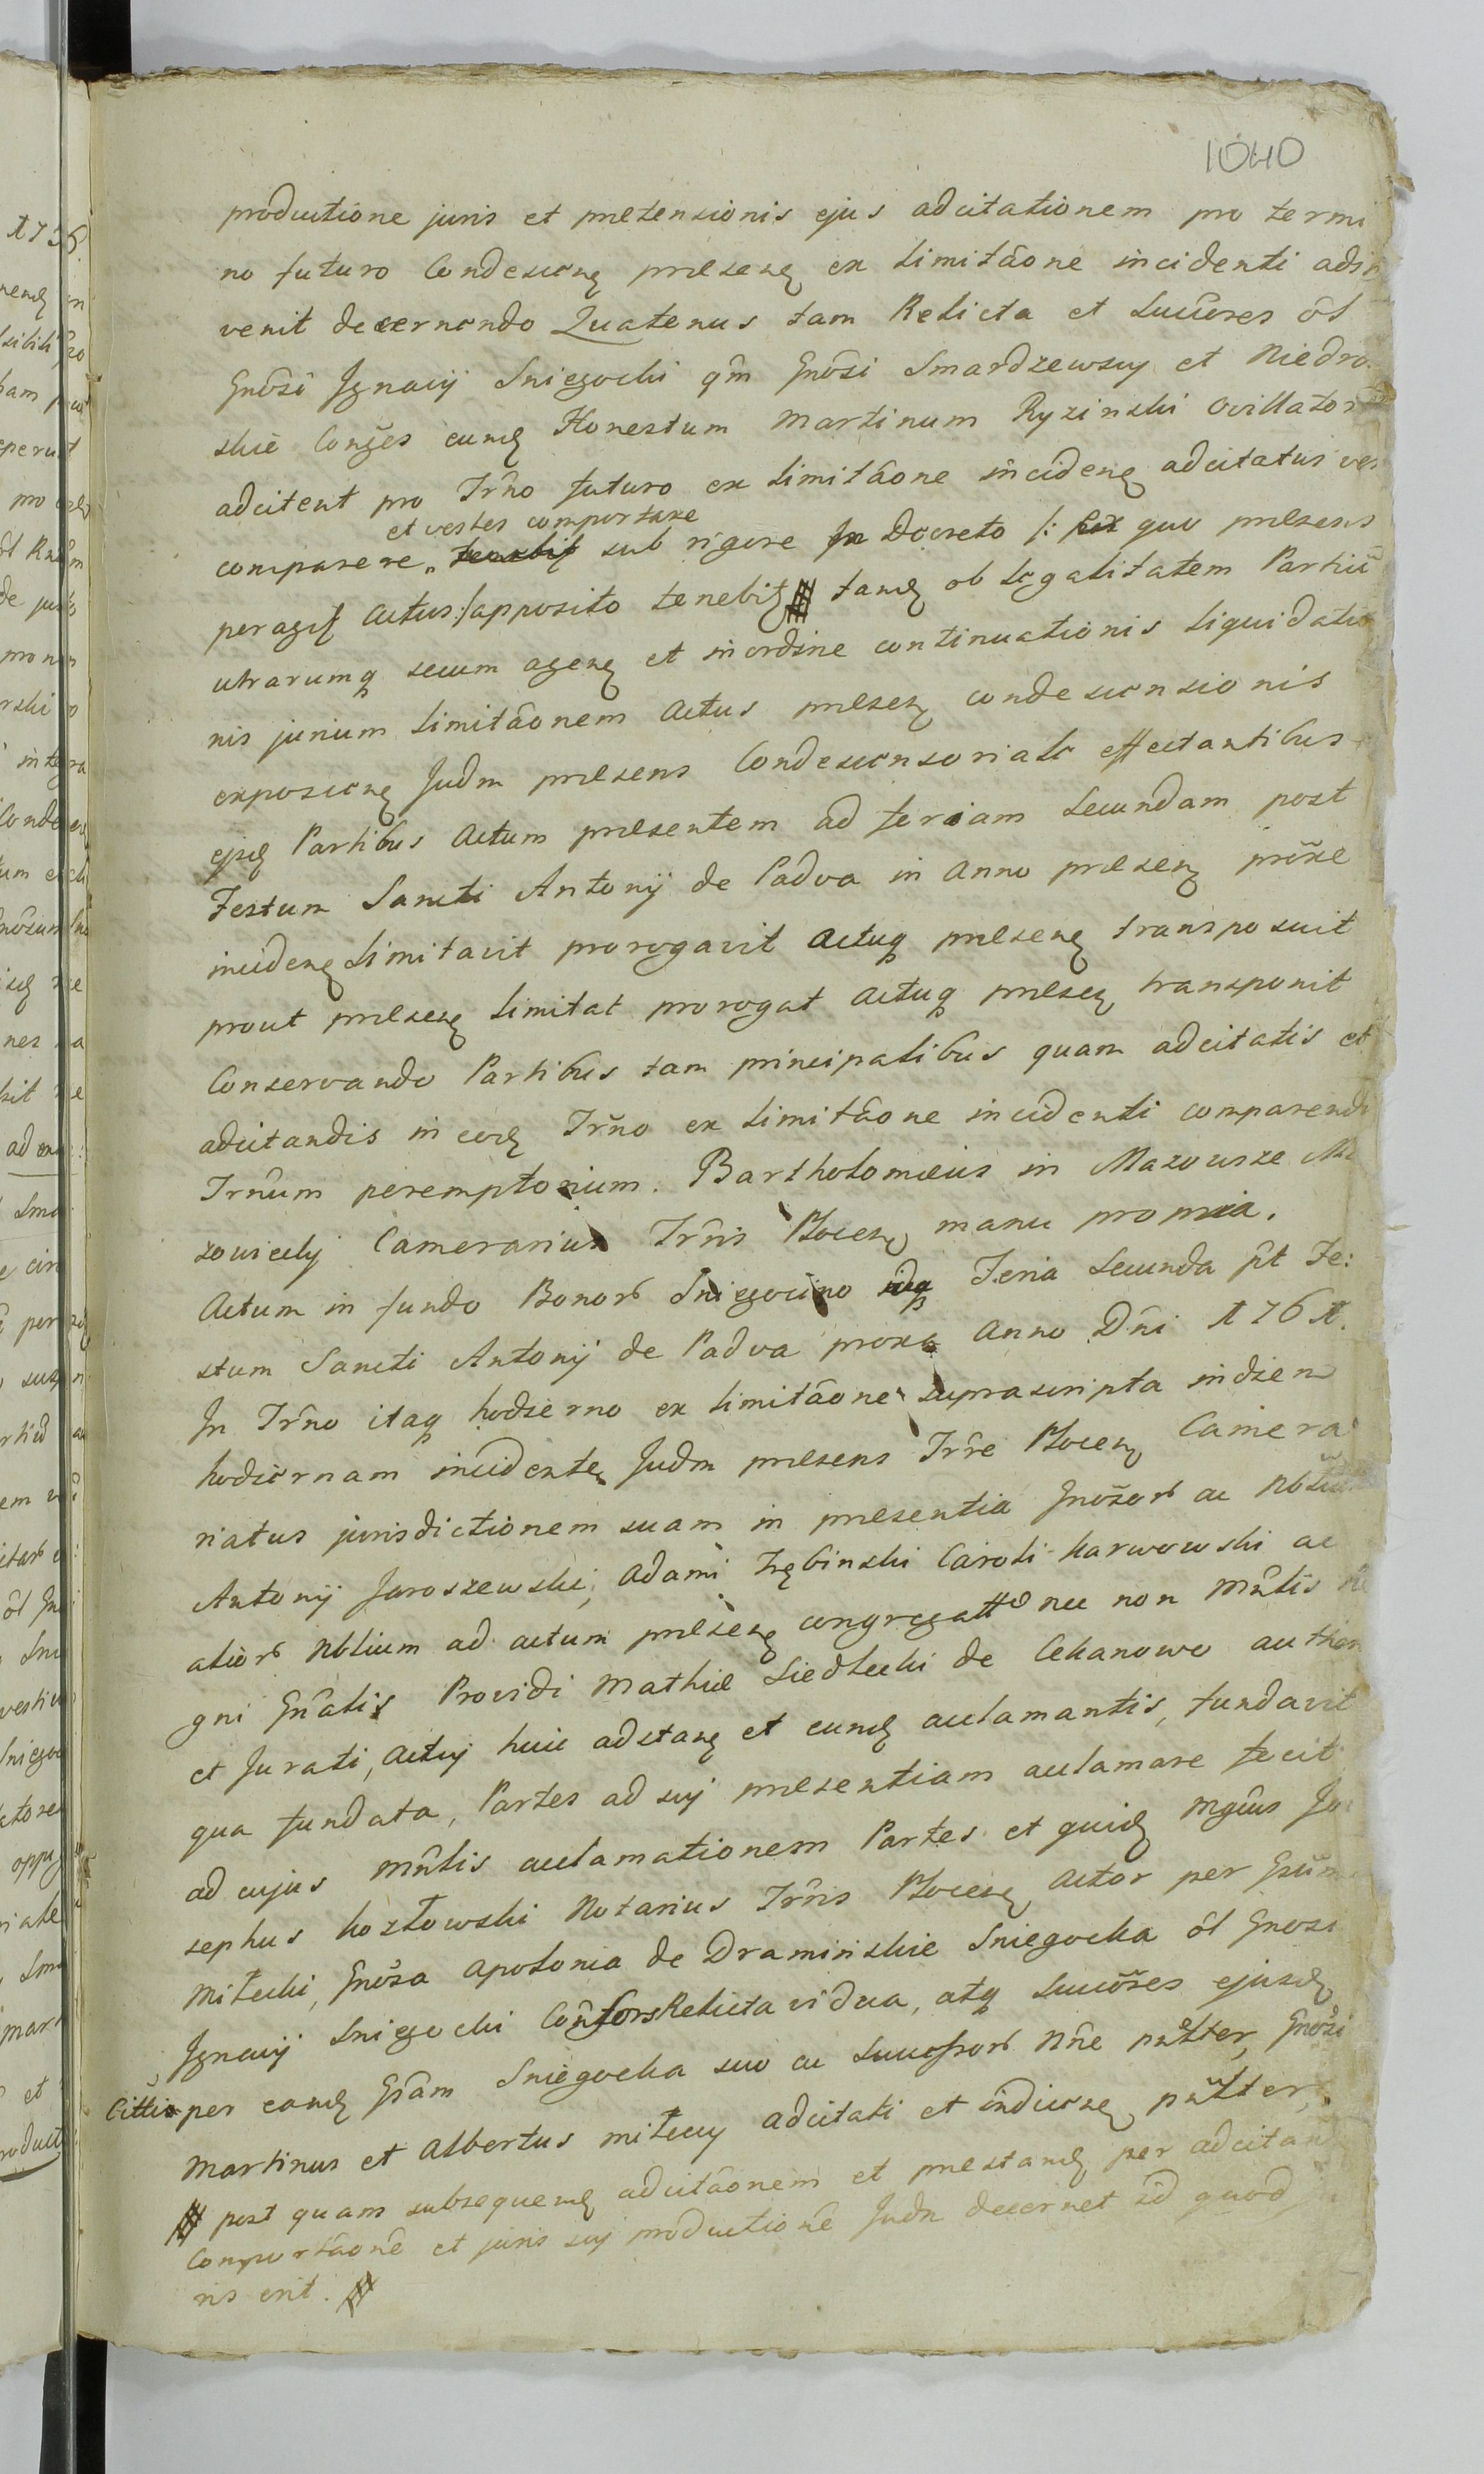 1040
productione juris et prætensionis ejus adcitationem pro termi
no futuro Condescen præsen ex limitãone incidenti
venit decernendo Quatenus tam Relicta et Succõres ôl
Gnôsi Ignacij Sniegocki qm̃ Gnôsi Smardzewscy et Niedro
skie Conges eund Honestum Martinum Ryzinski ovillator
adcitent pro Trño futuro ex limitãone inciden adcitatus
et vestes comportare
comparere sub rigore in Decreto /: ex quo præsens
peragit actus :/ apposito tenebit tand ob legalitatem Partiũ
utrarumq secum agen et in ordine continuationis liquidatio
nis jurium limitãonem actus præsen condescensionis
exposcen Judm præsens Condescensoriale effectantibus
ejsd Partibus actum præsentem ad feriam Secundam post
Festum Sancti Antonij de Padva in anno præsen prõxe
inciden limitavit prorogavit actuq præsen transposuit
prout præsen limitat prorogat actuq præsen transponit
Conservando Partibus tam principalibus quam adcitatis et
adcitandis in eod Trño ex limitãone incidenti comparendi
Trñum peremptorium. Bartholomæus in Mazowsze Ma
zowiecky Camerarius Trr̃is Plocen manu propria.
Actum in fundo Bonorb Sniegocino idq Feria Secunda p̃t Fe:
stum Sancti Antonij de Padva proxa Anno Dñi 1761.
In Trño itaq hodierno ex limitãone suprascripta in diem
hodiernam inciden Judm præsens Trr̃e Plocen Camera
riatus jurisdictionem suam in præsentia Gnõsorb ac Nbliũ
Antonij Jaroszewski, Adami Zębinski Caroli Karwowski ac
aliorb Nblium ad actum præsen congregatt nec non Mñlis
gni Gñalis Providi Mathiæ Siedlecki de Cekanowo authen
et Jurati, actuj huic adstan et eund acclamantis, fundavit
qua fundata, Partes ad suj præsentiam acclamare fecit
ad cujus Mñlis acclamationem Partes et quid Mgcũs Jo
sephus Kozłowski Notarius Trr̃is Plocen Actor per Gsũm
Mitecki, Gnôsa Apolonia de Draminskie Sniegocka ôl Gnosi
Ignacij Sniegocki Consors Relicta vidua, atq Succõres ejusd
Citti per eand Gsãm Sniegocka suo ac Successorb Nñe pãtter, Gnôsi
Martinus et Albertus Mitecey adcitati et indicen pãtter,
post quam subsequend adcitãonem et præstand per adcitand
Comportãonẽ et juris suj productionẽ Judm decernet id quod ju
ris erit.